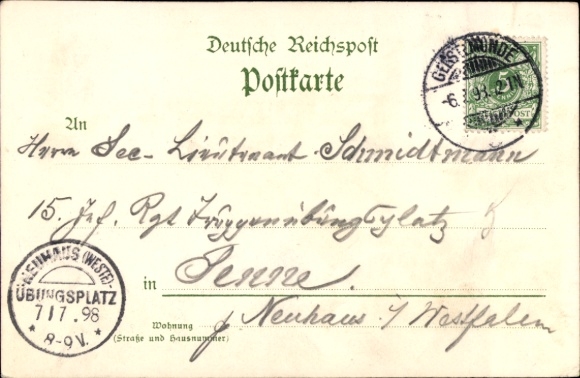 Deutsche Reichspost
Postkarte
GEESTEMÜNDE
-6. 98. 2
5
POST
An
Herrn Sec-Lieutenant Schmidtmann
15. Inf. Rgt Truppenübungsplatz
in Senne.
Neuhaus i/Westfalen
Wohnung
(Straße und Hausnummer)
NEUHAUS (WESTF)
ÜBUNGSPLATZ
7/7.98
* 8-9V. *